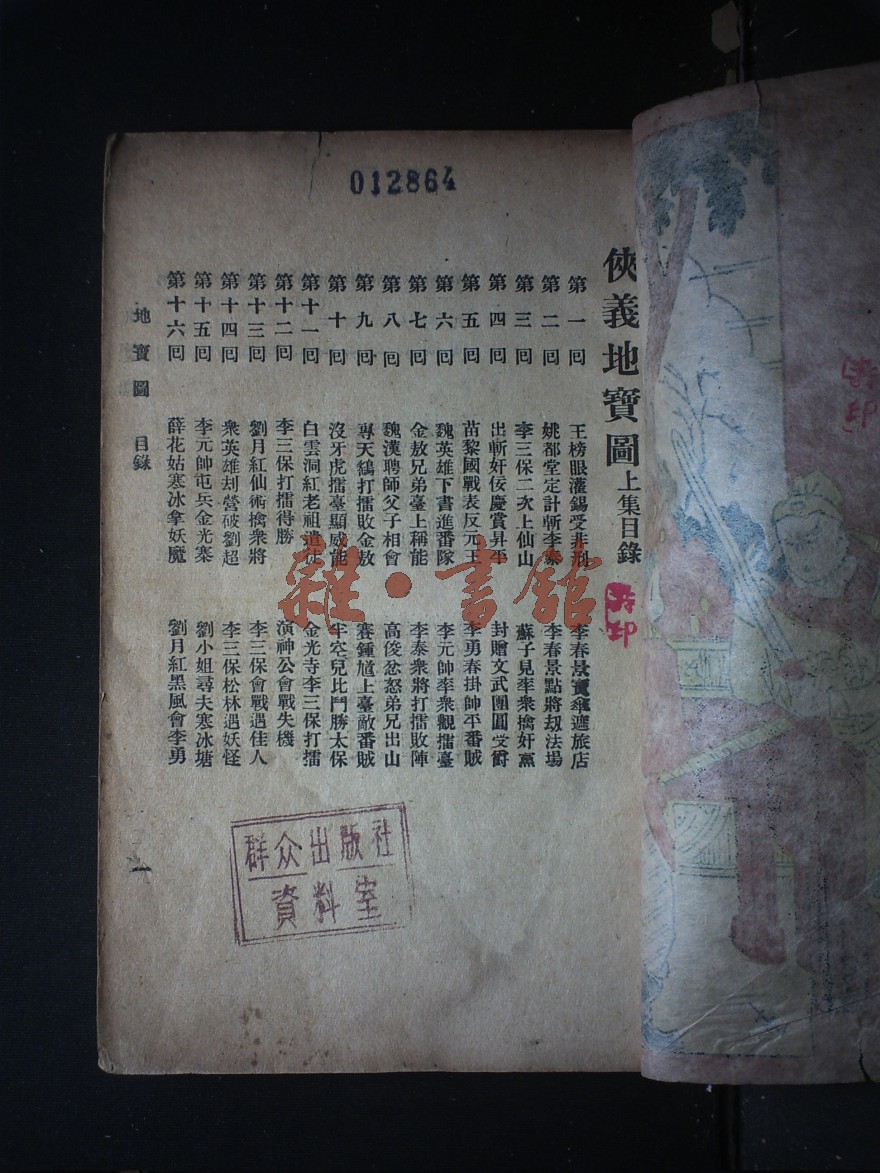 012864
俠義地寶圖上集目錄
第一回 王榜眼灌錫受非刑 李春景寶傘遮旅店
第二回 姚都堂定計斬李泰 李春景點將刼法場
第三回 李三保二次上仙山 蘇子見率衆擒奸黨
第四回 出斬奸佞慶賞昇平 封贈文武團圓受爵
第五回 苗黎國戰表反元王 李勇春掛帥平番賊
第六回 魏英雄下書進番隊 李元帥率衆觀擂臺
第七回 金敖兄弟臺上稱能 李泰衆將打擂敗陣
第八回 魏漢聘師父子相會 高俊忿怒弟兄出山
第九回 專天鷂打擂敗金敖 賽鍾馗上臺敵番賊
第十回 沒牙虎擂臺顯威能 牢罕兒比鬥勝太保
第十一回 白雲洞紅老祖遣徒 金光寺李三保打擂
第十二回 李三保打擂得勝 演神公會戰失機
第十三回 劉月紅仙術擒衆將 李三保會戰遇佳人
第十四回 衆英雄刼營破劉超 李三保松林遇妖怪
第十五回 李元帥屯兵金光寨 劉小姐尋夫寒冰塘
第十六回 薛花姑寒冰拿妖魔 劉月紅黑風會李勇
地寶圖 目錄 一
群众出版社
資料室
雜·書館